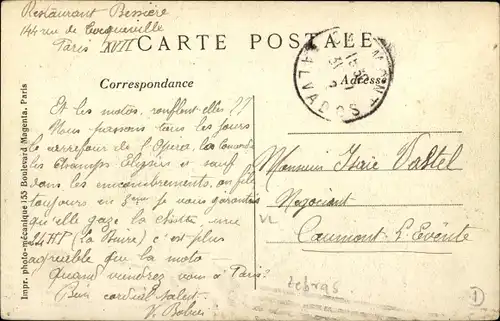 Restaurant Bessière
144 rue de Tocqueville
Paris XVII
CARTE POSTALE
Correspondance
Adresse
CALVADOS
Et les motos, ronflent-elles ??
Nous passons tous les jours
le carrefour de l'Opera, la Concorde
les Champs Elysées et sauf
dans les encombrements, on file
toujours en 3eme je vous garantis
qu'elle gaze la chère une
24 HP (la Buire) c'est plus
agréable que la moto -
Quand viendrez vous à Paris?
Bien cordial salut.
Monsieur Isaïe Vastel
Negociant
Caumont-l'Eventé
VL
zebras
D
Impr. photo-mécanique 155 Boulevard Magenta, Paris